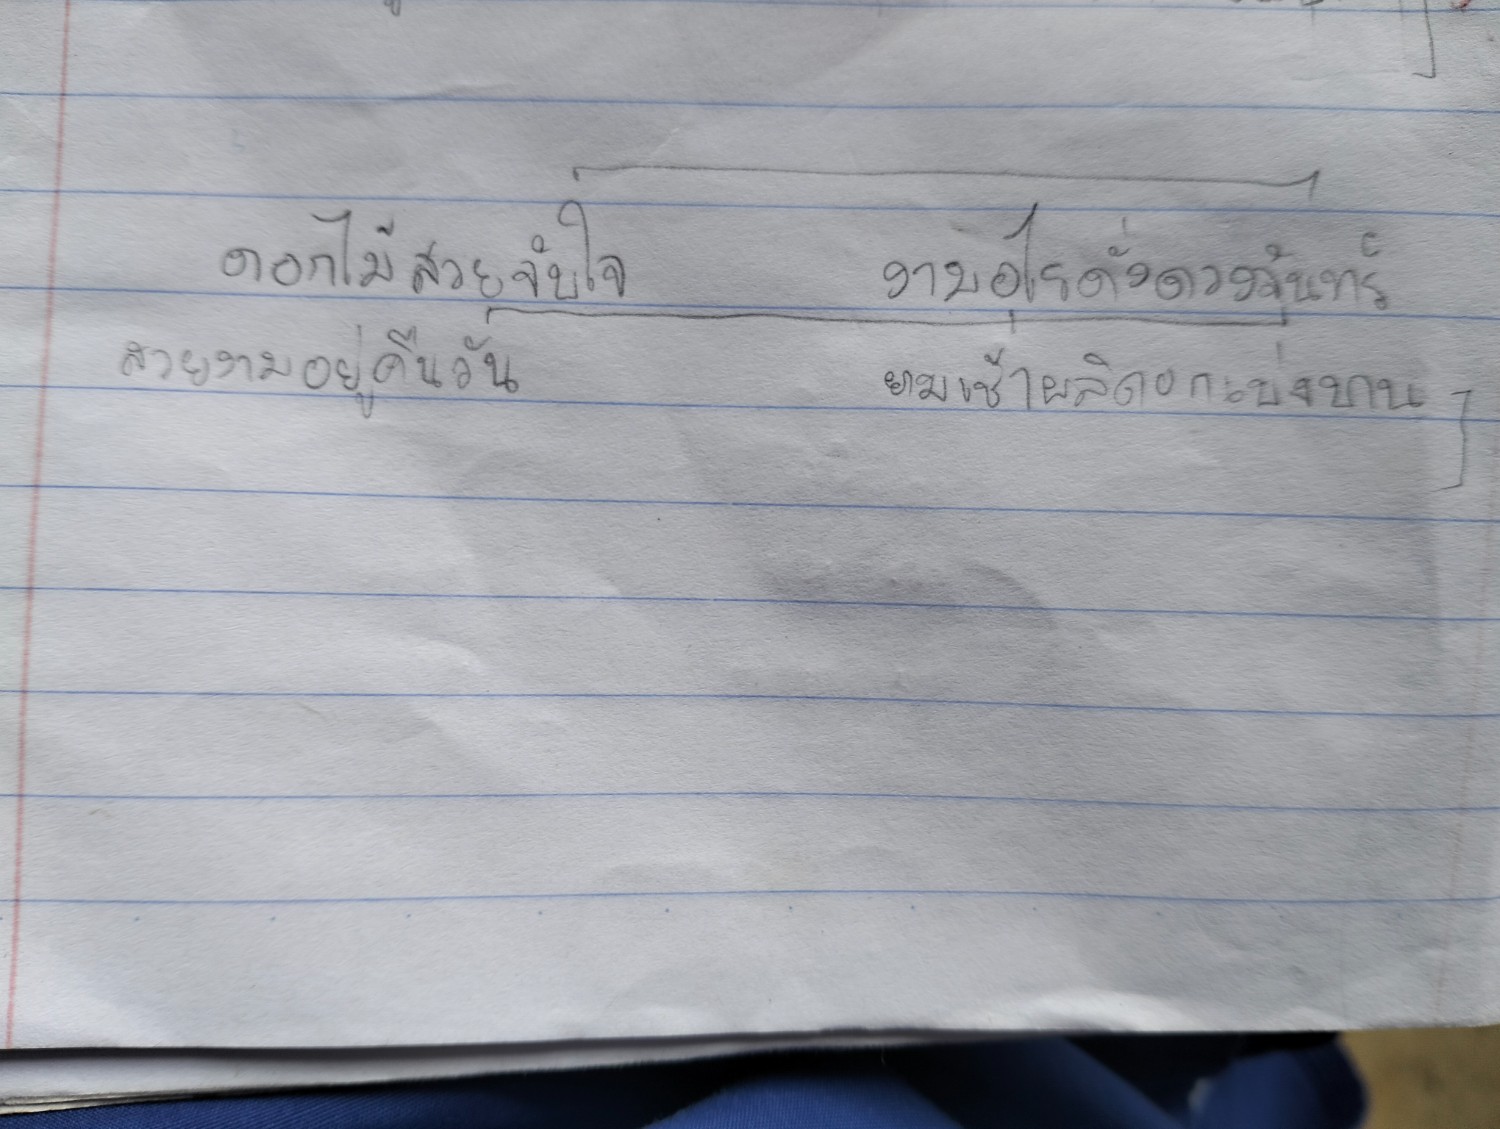 ดอกไม้สวยจับใจ งามอุไรดั่งดวงจันทร์
สวยงามอยู่คืนวัน ยามเช้าผลิดอกเบ่งบาน